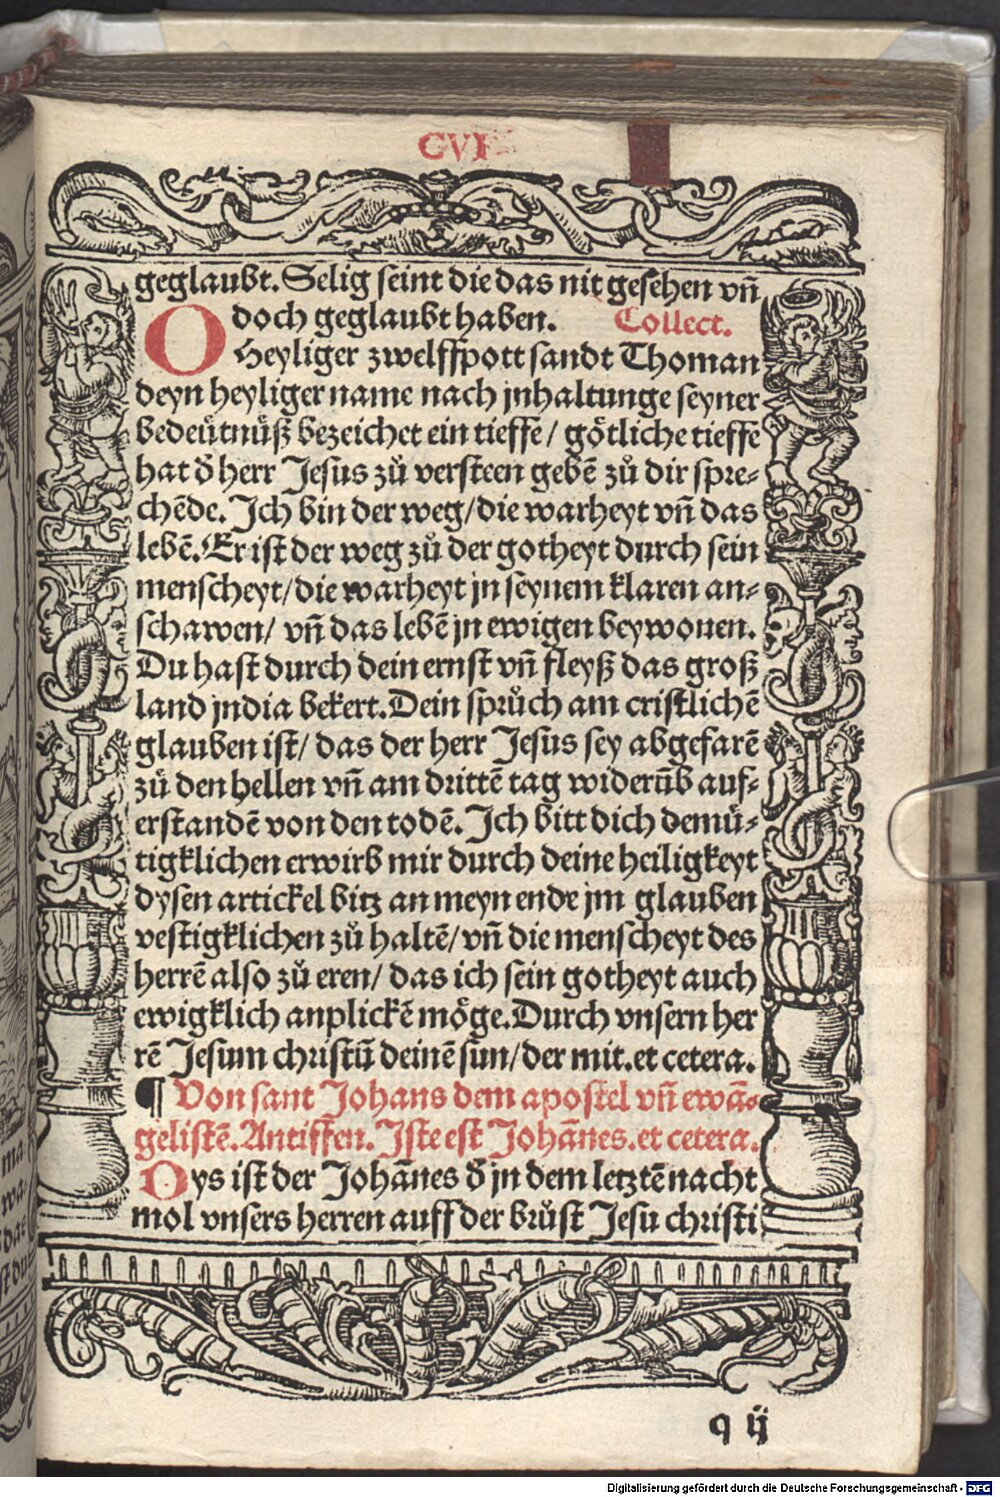 CVI
geglaubt. Selig seint die das nit gesehen vñ
doch geglaubt haben. Collect.
O Heyliger zwelffpott sandt Thoman
deyn heyliger name nach jnhaltunge seyner
bedeütnüß bezeichet ein tieffe / götliche tieffe
hat d̄ herr Jesus zů versteen gebẽ zů dir spre⸗
chẽde. Ich bin der weg/die warheyt vñ das
lebẽ. Er ist der weg zů der gotheyt durch sein
menscheyt/die warheyt jn seynem klaren an⸗
schawen/ vñ das lebẽ jn ewigen beywonen.
Du hast durch dein ernst vñ fleyß das groß
land jndia bekert. Dein sprůch am cristlichẽ
glauben ist/ das der herr Jesus sey abgefarẽ
zů den hellen vñ am drittẽ tag widerũb auf⸗
erstandẽ von den todẽ. Ich bitt dich demü⸗
tigklichen erwirb mir durch deine heiligkeyt
dysen artickel bitz an meyn ende jm glauben
vestigklichen zů haltẽ/vñ die menscheyt des
herrẽ also zů eren/ das ich sein gotheyt auch
ewigklich anplickẽ möge. Durch vnsern her
rẽ Jesum christũ deinẽ sun/der mit. et cetera.
¶ Von sant Johans dem apostel vñ ewã⸗
gelistẽ. Antiffen. Iste est Johãnes. et cetera.
Dys ist der Johãnes d̄ jn dem letztẽ nacht
mol vnsers herren auff der brůst Jesu christi
q ij
Digitalisierung gefördert durch die Deutsche Forschungsgemeinschaft - DFG